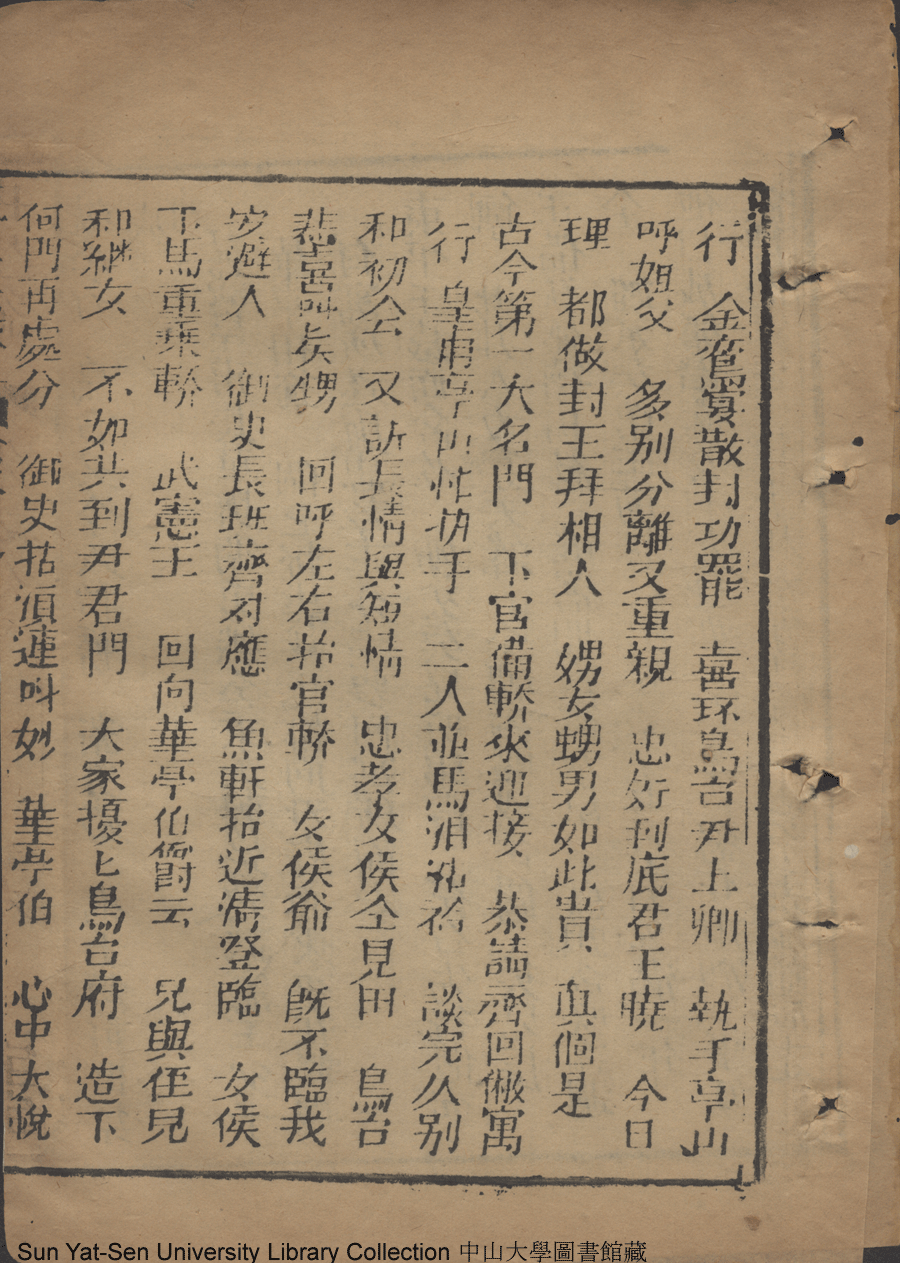 行　金鸞宴散封功罷　喜环烏台尹上卿　執手亭山
呼姐父　多多别分離又重親　忠奸到底君王曉　今日
理　都做封王拜相人　甥女甥男如此貴　真個是
古今第一大名門　下官備轎來迎接　恭請齊回僘寓
行　皇甫亭山忙扨手　二人並馬淚　談完久別
和初会　又訴長情與短情　忠孝女侯仝見田　烏台
悲叫矣甥　回呼左右抬官轎　女侯爺　既不臨我
安避人　御史長班齊对應　魚軒抬近淸登臨　女侯
下馬重乗轎　武憲王　回向華亭伯爵云　兄與侄兒
和継女　不如共到尹君門　大家擾匕烏台府　造下
何門再處分　御史拈湏連叫妙　華亭伯　心中大悅
Sun Yat-Sen University Library Collection 中山大學圖書館藏